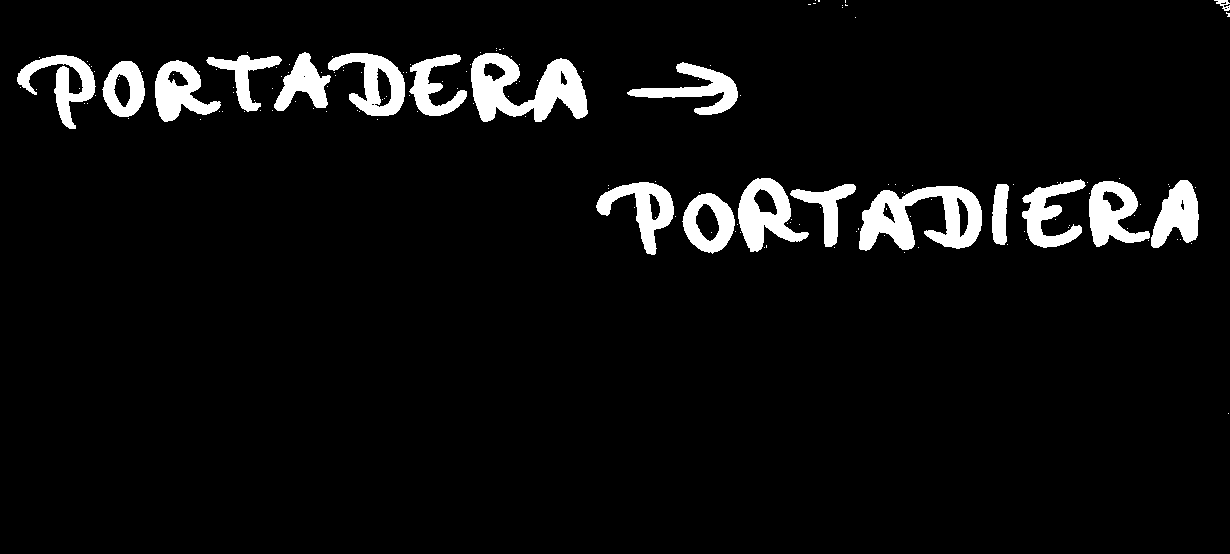 PORTADERA →
PORTADIERA